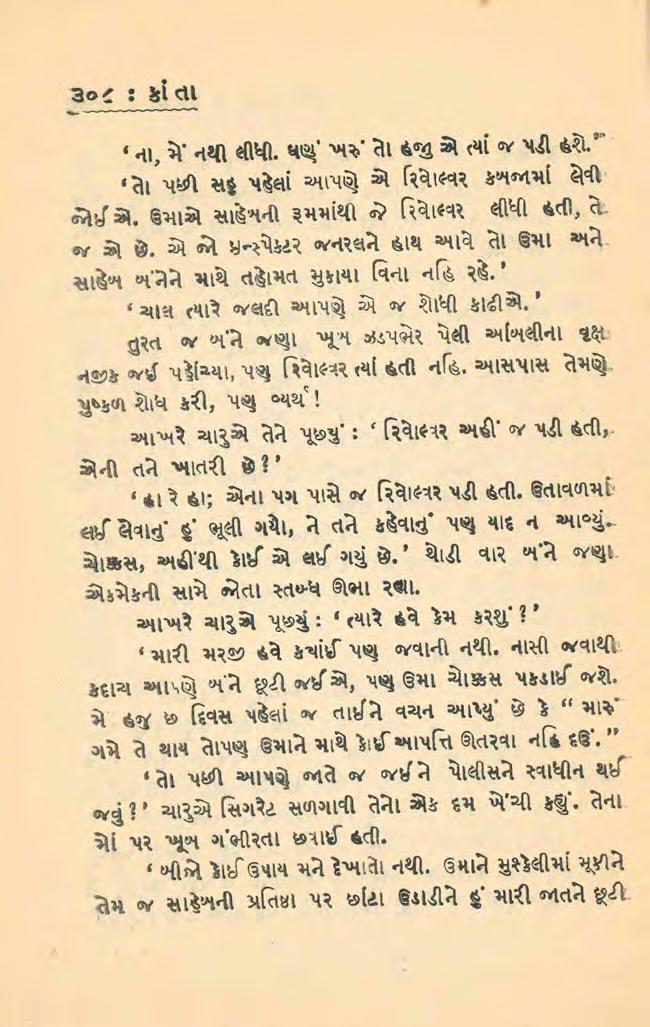 ૩૦૮ : કાંતા
‘ ના, મેં નથી લીધી. ઘણું ખરું તો હજી એ ત્યાં જ પડી હશે.”
‘તો પછી સહુ પહેલાં આપણે એ રિવોલ્વર કબજામાં લેવી
જોઈએ. ઉમાએ સાહેબની રૂમમાંથી જે રિવોલ્વર લીધી હતી, તે
જ એ છે. એ જો ઇન્સ્પેક્ટર જનરલને હાથ આવે તો ઉમા અને
સાહેબ બંનેને માથે તહોમત મુકાયા વિના નહિ રહે.’
‘ ચાલ ત્યારે જલદી આપણે એ જ શોધી કાઢીએ.’
તુરત જ બંને જણા ખૂબ ઝડપભેર પેલી આંબલીના વૃક્ષ
નજીક જઈ પહોંચ્યા, પણ રિવોલ્વર ત્યાં હતી નહિ. આસપાસ તેમણે
પુષ્કળ શોધ કરી, પણ વ્યર્થ !
આખરે ચારુએ તેને પૂછ્યું : ‘ રિવોલ્વર અહીં જ પડી હતી,
એની તને ખાતરી છે ?’
‘ હા રે હા; એના પગ પાસે જ રિવોલ્વર પડી હતી. ઉતાવળમાં
લઈ લેવાનું હું ભૂલી ગયો, ને તને કહેવાનું પણ યાદ ન આવ્યું.
ચોક્કસ, અહીંથી કોઈ એ લઈ ગયું છે.’ થોડી વાર બંને જણા
એકમેકની સામે જોતા સ્તબ્ધ ઊભા રહ્યા.
આખરે ચારુએ પૂછ્યું : ‘ ત્યારે હવે કેમ કરશું ?’
‘ મારી મરજી હવે કયાંઈ પણ જવાની નથી. નાસી જવાથી
કદાચ આપણે બંને છૂટી જઈએ, પણ ઉમા ચોક્કસ પકડાઈ જશે.
મે હજુ છ દિવસ પહેલાં જ તાઈને વચન આપ્યું છે કે “ મારું
ગમે તે થાય તોપણ ઉમાને માથે કોઈ આપત્તિ ઊતરવા નહિ દઉં.”
‘તો પછી આપણે જાતે જ જઈને પોલીસને સ્વાધીન થઈ
જવું ?’ ચારુએ સિગરેટ સળગાવી તેનો એક દમ ખેંચી કહ્યું. તેના
મોં પર ખૂબ ગંભીરતા છવાઈ હતી.
‘ બીજો કોઈ ઉપાય મને દેખાતો નથી. ઉમાને મુશ્કેલીમાં મૂકીને
તેમ જ સાહેબની પ્રતિષ્ઠા પર છાંટા ઉડાડીને હું મારી જાતને છૂટી